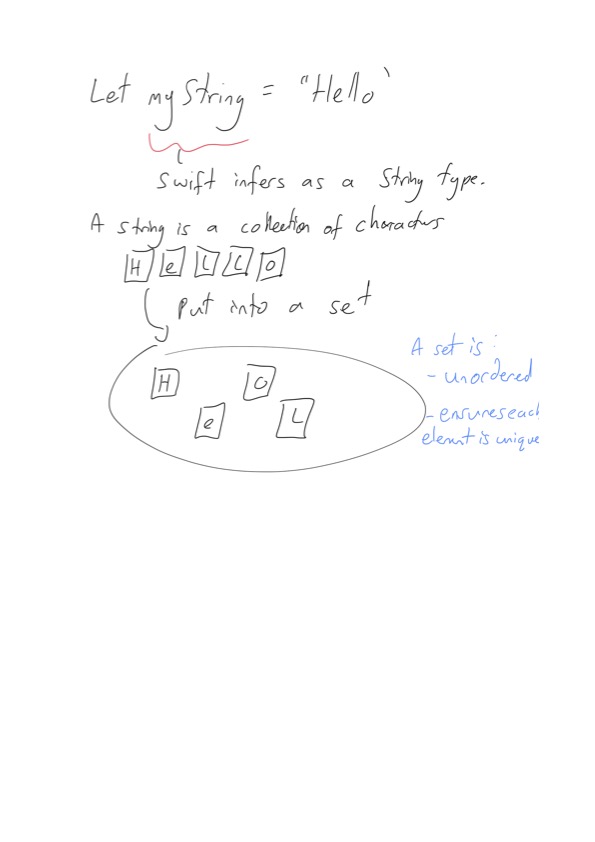 Let myString = "Hello'
Swift infers as a String type.
A string is a collection of characters
H e L L O
Put into a set
A set is :
- unordered
- ensures each
element is unique
H O
e L